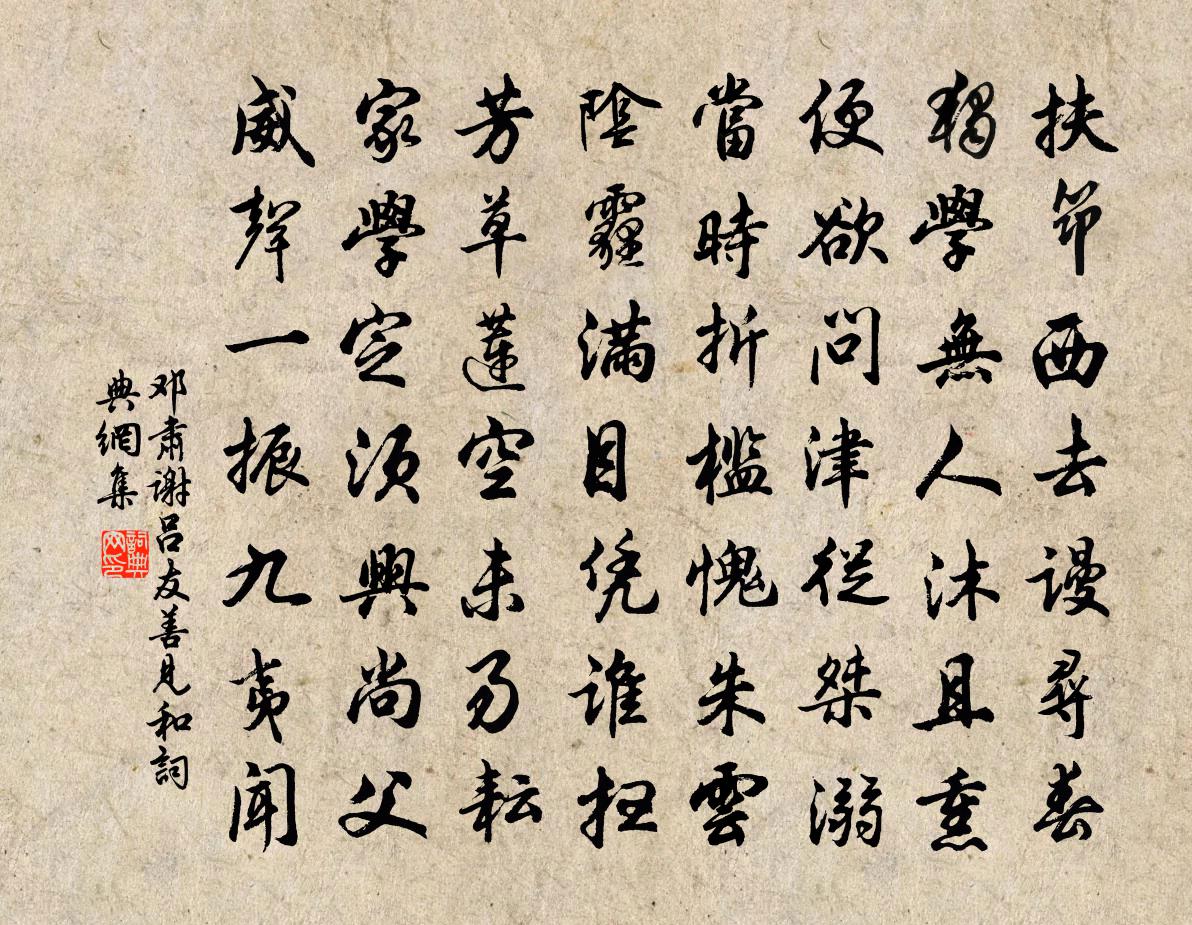 扶筇西去謾尋春
獨學無人沐且熏
便欲問津從桀溺
當時折檻愧朱雲
陰霾滿目凭誰扫
芳草蓮空未易耘
家學定須興尚父
威聲一振九夷聞
邓肅謝呂友善見和詞
典網集
詞典网印